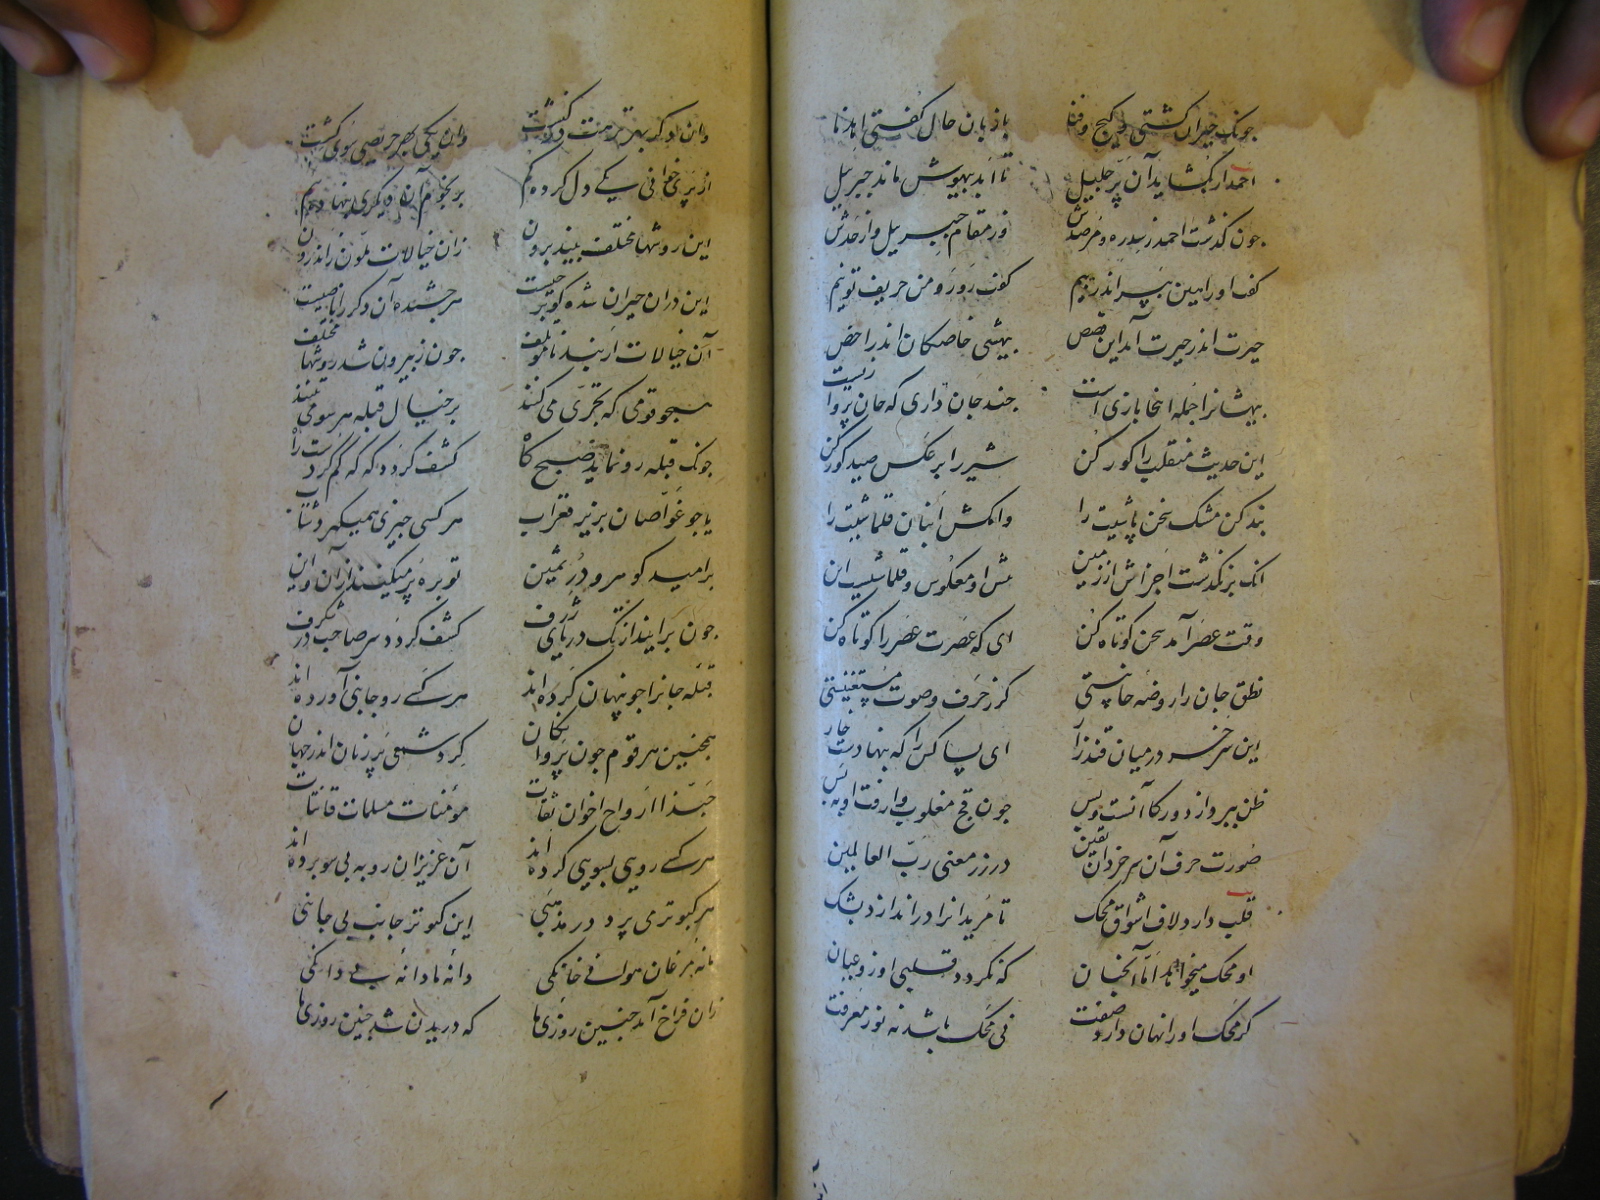 جونک حیران گشتی و گیج و فنا با زبان حال گفتی اهدنا
احمد ار بگشاید آن پر جلیل تا ابد بیهوش ماند جبرییل
جون گذشت احمد ز سدره و مرصدش وز مقام جبرییل و از حدش
گفت او را هین بپر اندر پیم گفت رو رو من حریف تو نیم
حیرت اندر حیرت آمد این قصص بیهشی خاصکان اندر اخص
بیهشیها جمله اینجا بازی است جند جان داری که جان
این حدیث منقلب را کور کن شیر را برعکس صید کور کن
بند کن مشک سخن پاشیت را وا مکن انبان قلماشیت را
انک بر نکذشت اجزاش از زمین پیش او معکوس و قلماشیست این
وقت عصر آمد سخن کوتاه کن ای که عصرت عصر را کوتاه کن
نطق جان را روضه جانیستی کر ز حرف و صوت مستغنیستی
این سر خر در میان قندزار ای بسا کس را که بنهادست خار
ظن ببرد از دور کان آنست و بس جون قج مغلوب وا رفت او به پس
صورت حرف آن سر خر دان یقین در رز معنی رب العالمین
قلب دارد لاف اشواق محک تا مریدانرا در اندازد بشک
او محک میخواهد اما آنجنان که نکردد قلبی او زو عیان
کر محک او را نهان دارد صفت نی محک باشد نه نور معرفت
وان دکر بهر ترهب در کنشت وان یکی بهر حریصی سوی کشت
از پری خوانی یکی دل کرده کم بر نجوم آن دیکری بنهاده سم
این روشها مختلف بیند برون زان خیالات ملون ز اندرون
این در آن حیران شده کو بر جیست هر جشنده آن دکر را نافیست
آن خیالات ار نبد نامؤتلف جون ز بیرون شد روشها مختلف
همجو قومی که تحری می کنند بر خیال قبله هر سو می تنند
جونک قبله رو نماید صبحکاه کشف کردد که که کم کردست راه
یا جو غواصان بزیر قعر آب هر کسی جیزی همی کیرد شتاب
بر امید کوهر و در ثمین توبره پر میکنند از آن و این
جون بر آیند از تک دریای ژرف کشف کردد صاحب در شکرف
قبله جانرا جو پنهان کرده اند هر کسی رو جانبی آورده اند
همجنین هر قوم جون پروانکان کرد شمعی پر زنان اندر جهان
حبذا ارواح اخوان ثقات مؤمنات مسلمات قانتات
هر کسی رویی بسویی کرده اند آن عزیزان رو به بی سو برده اند
هر کبوتر می پرد در مذهبی این کبوتر جانب بی جانبی
ما نه مرغان هوا نی خانکی دانه ما دانه بی دانکی
زان فراخ آمد جنین روزی ما که دریدن شد جنین روزی ما